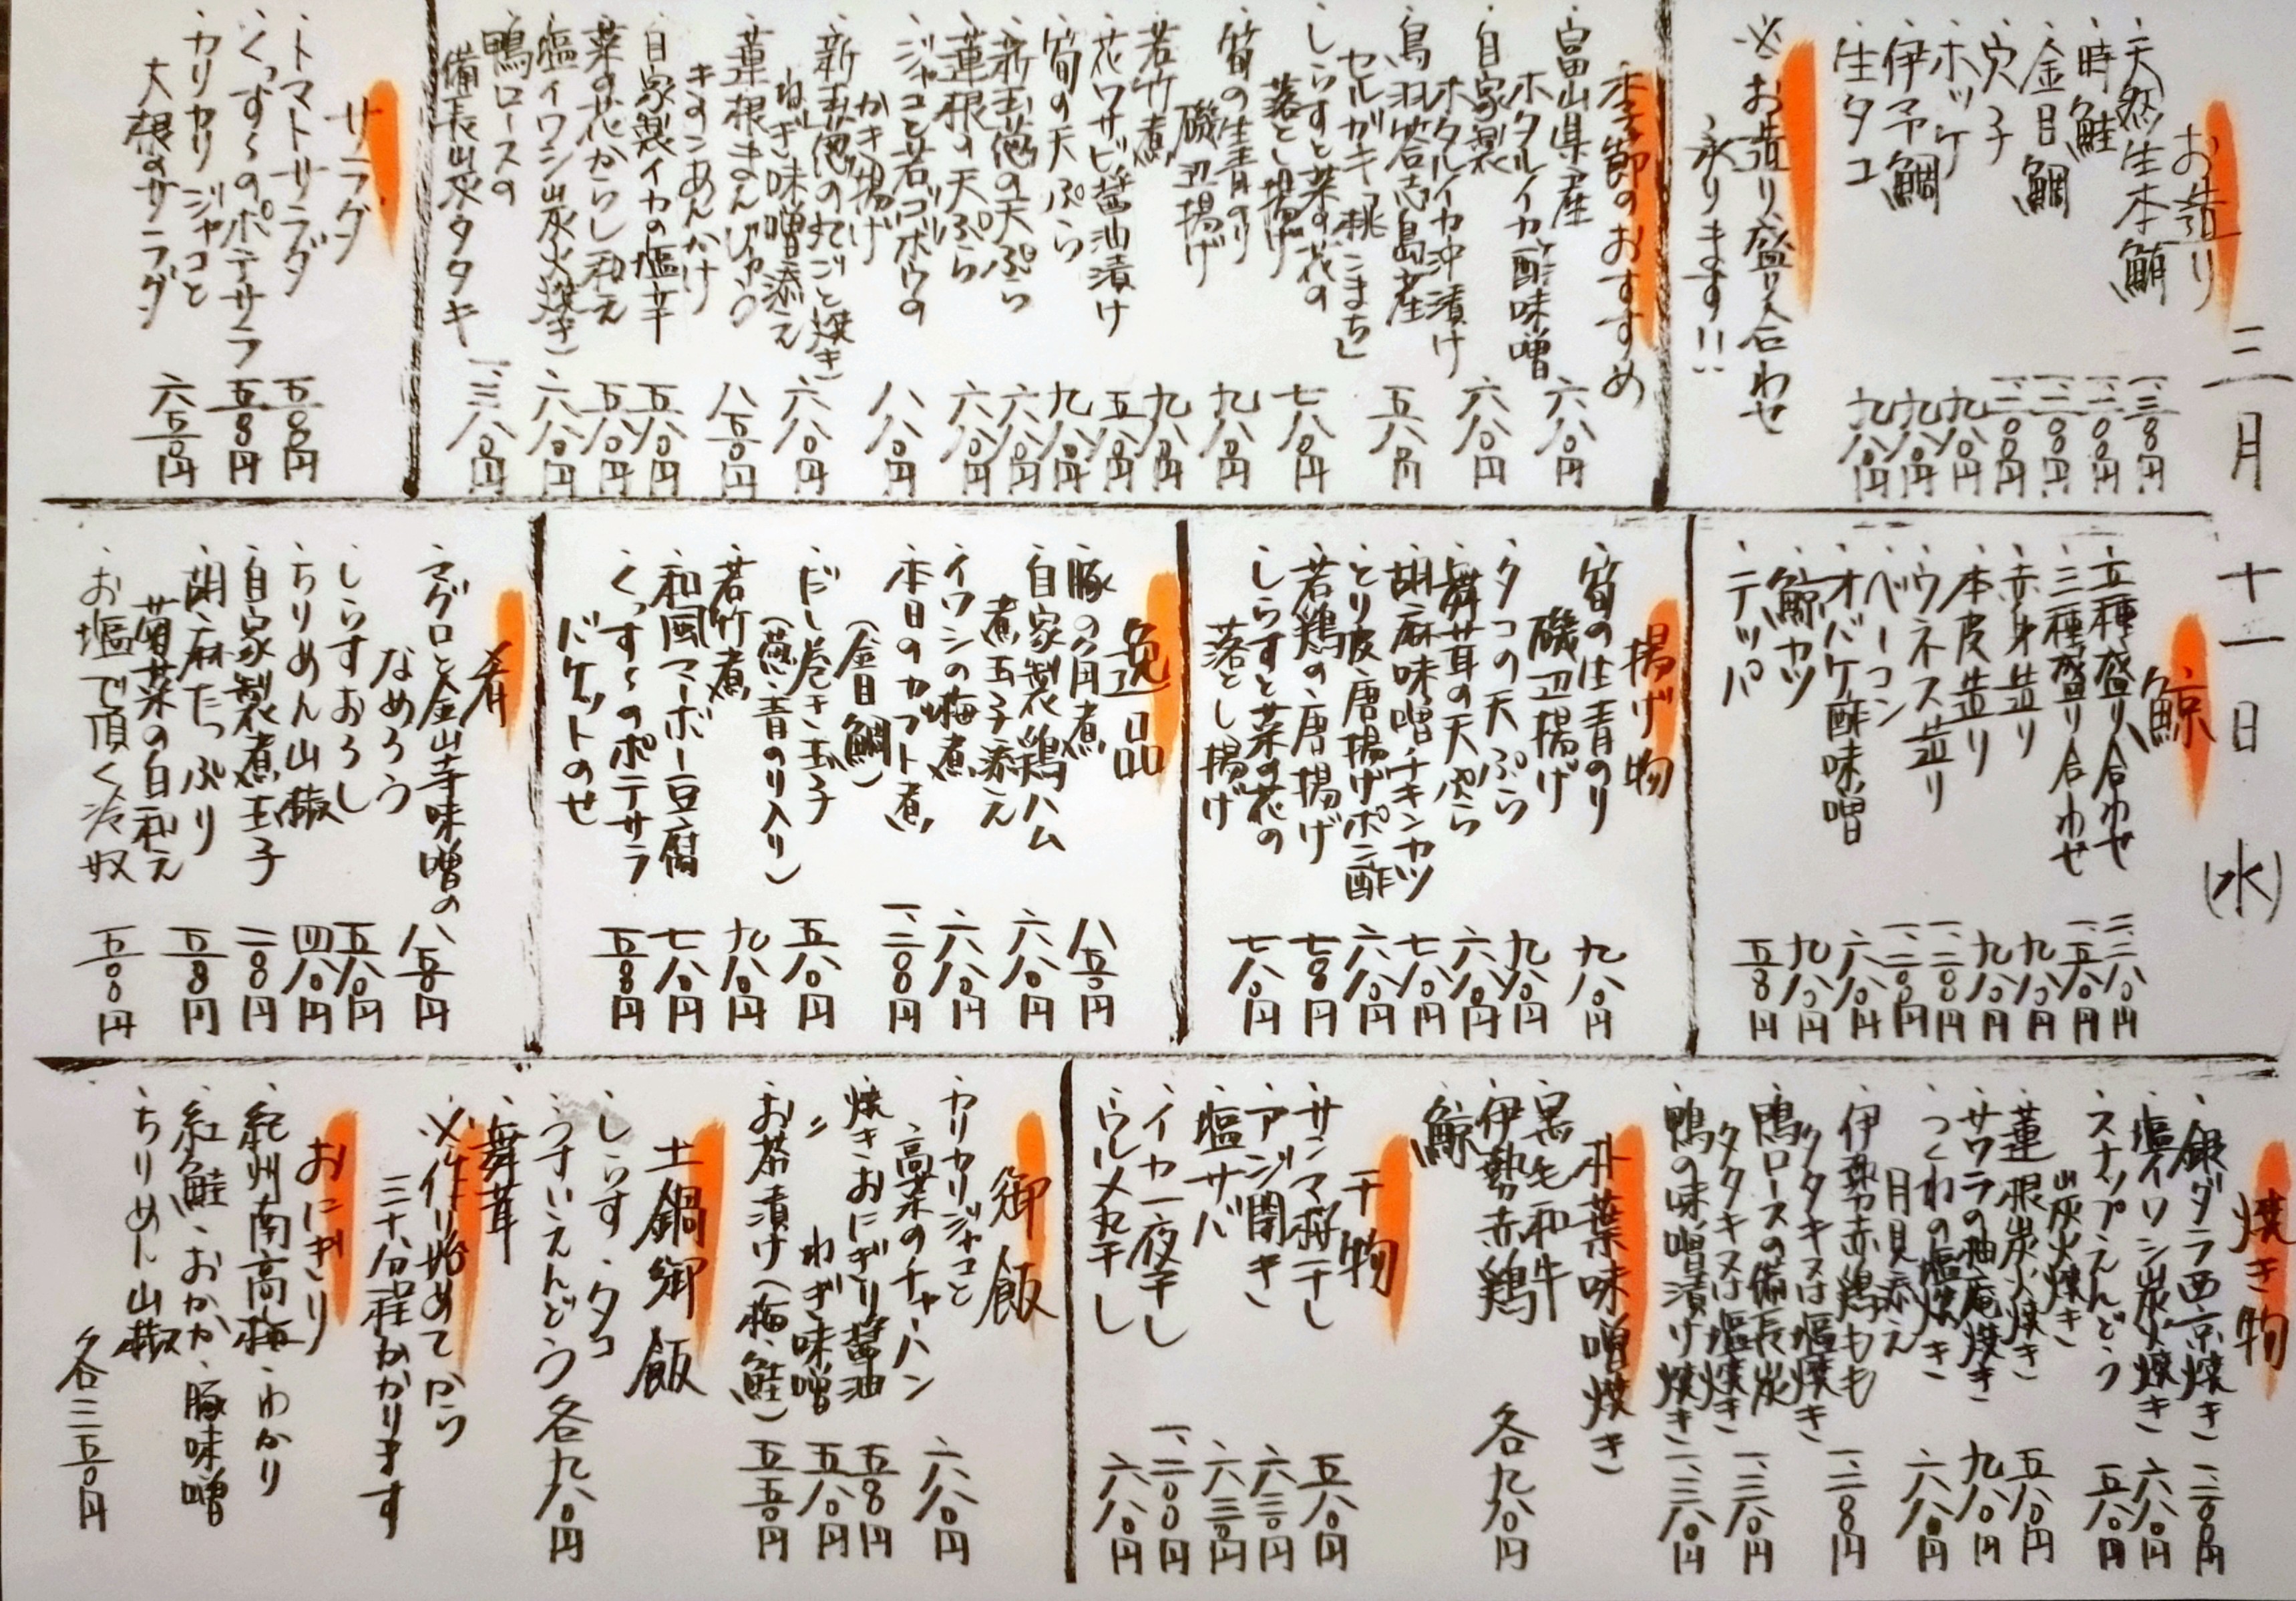 三月十一日(水)
お造り
・天然生本鮪 一、三〇〇円
・時鮭 一、二〇〇円
・金目鯛 一、二〇〇円
・穴子 一、二〇〇円
・ホッケ 九八〇円
・伊予鯛 九八〇円
・生タコ 九八〇円
※お造り盛り合わせ
承ります!!
季節のおすすめ
・富山県産
ホタルイカ酢味噌 六八〇円
・自家製
ホタルイカ沖漬け 六八〇円
・鳥羽答志島産
セルガキ「桃こまち」 五八〇円
・しらすと菜の花の
落とし揚げ 七八〇円
・筍の生青のり
磯辺揚げ 九八〇円
・若竹煮 九八〇円
・花ワサビ醤油漬け 五八〇円
・筍の天ぷら 九八〇円
・新玉葱の天ぷら 六八〇円
・蓮根の天ぷら 六八〇円
・ジャコと若ゴボウの
かき揚げ 八八〇円
・新玉葱の丸ごと焼き
ねぎ味噌添え 六八〇円
・蓮根まんじゅう
きのこあんかけ 八五〇円
・自家製イカの塩辛 五八〇円
・菜の花からし和え 五八〇円
・塩イワシ炭火焼き 六八〇円
・鴨ロースの
備長炭タタキ 一、三八〇円
サラダ
・トマトサラダ 五〇〇円
・くっすぅのポテサラ 五五〇円
・カリカリジャコと
大根のサラダ 六五〇円
鯨
・五種盛り合わせ 二、二八〇円
・三種盛り合わせ 一、五八〇円
・赤身造り 九八〇円
・本皮造り 九八〇円
・ウネス造り 一、二〇〇円
・ベーコン 一、二〇〇円
・オバケ酢味噌 六八〇円
・鯨カツ 九八〇円
・テッパ 五五〇円
揚げ物
・筍の生青のり
磯辺揚げ 九八〇円
・タコの天ぷら 九八〇円
・舞茸の天ぷら 六八〇円
・胡麻味噌チキンカツ 七八〇円
・とり皮唐揚げポン酢 六八〇円
・若鶏の唐揚げ 七五〇円
・しらすと菜の花の
落とし揚げ 七八〇円
逸品
・豚の角煮 八五〇円
・自家製鶏ハム
煮玉子添え 六八〇円
・イワシの梅煮 六八〇円
・本日のカブト煮
(金目鯛) 一、二〇〇円
・だし巻き玉子
(葱・青のり入り) 五八〇円
・若竹煮 九八〇円
・和風マーボー豆腐 七八〇円
・くっすぅのポテサラ
バケットのせ 五五〇円
肴
・マグロと金山寺味噌の
なめろう 八五〇円
・しらすおろし 五八〇円
・ちりめん山椒 四八〇円
・自家製煮玉子 二〇〇円
・胡麻たっぷり
菊菜の白和え 五五〇円
・お塩で頂く冷奴 五〇〇円
焼き物
・銀ダラ西京焼き 一、二〇〇円
・塩イワシ炭火焼き 六八〇円
・スナップえんどう
炭火焼き 五八〇円
・蓮根炭火焼き 五八〇円
・サワラの柚庵焼き 九八〇円
・つくねの塩焼き
月見添え 六八〇円
・伊勢赤鶏もも
タタキ又は塩焼き 一、二〇〇円
・鴨ロースの備長炭
タタキ又は塩焼き 一、三八〇円
・鴨の味噌漬け焼き 一、三八〇円
朴葉味噌焼き
・黒毛和牛
・伊勢赤鶏
・鯨
各九八〇円
干物
・サンマ桜干し 五八〇円
・アジ開き 六三〇円
・塩サバ 六三〇円
・イカ一夜干し 一、二〇〇円
・ウルメ丸干し 六八〇円
御飯
・カリカリジャコと
高菜のチャーハン 六八〇円
・焼きおにぎり醤油 五五〇円
・〃 ねぎ味噌 五八〇円
・お茶漬け(梅・鮭) 五五〇円
土鍋御飯
・しらす・タコ
・うすいえんどう 各九八〇円
・舞茸
※作り始めてから
三十分程かかります
おにぎり
・紀州南高梅・わかり
・紅鮭・おかか・豚味噌
・ちりめん山椒
各三五〇円